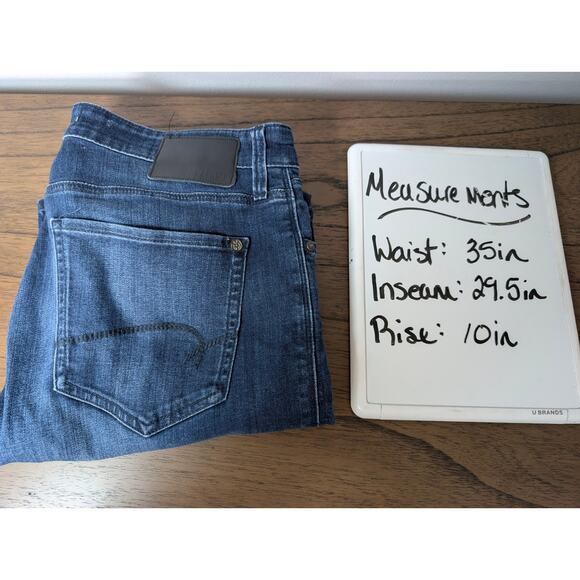 Measurements
Waist: 35in
Inseam: 29.5in
Rise: 10in
U BRANDS